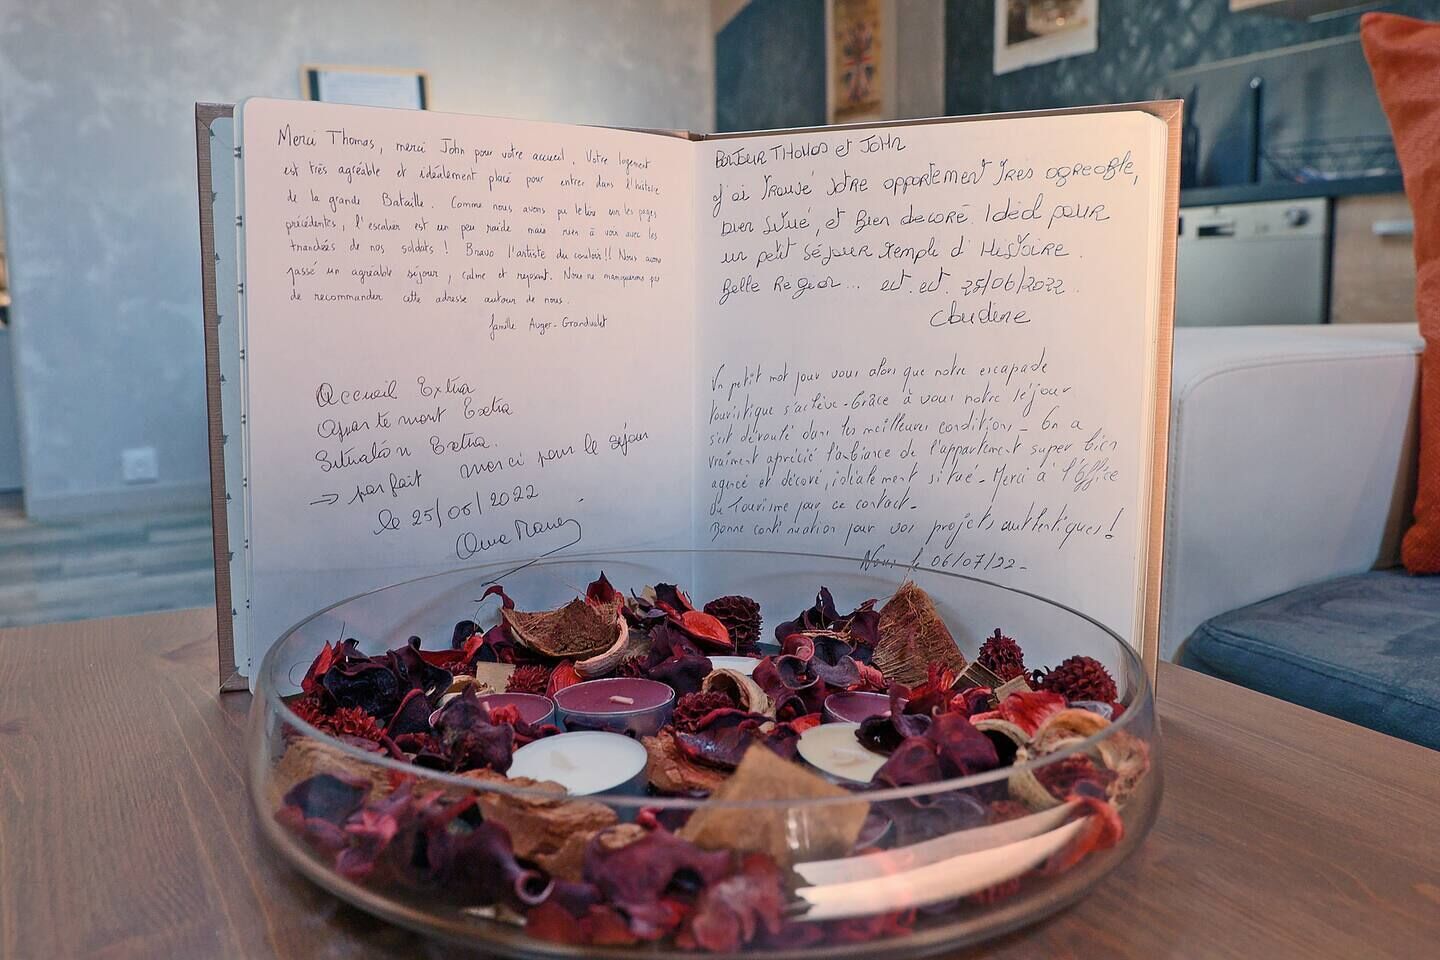 Merci Thomas, merci John pour votre accueil. Votre logement
est très agréable et idéalement placé pour entrer dans l'histoire
de la grande Bataille. Comme nous avons pu le lire sur les pages
précédentes, l'escalier est un peu raide mais rien à voir avec les
tranchées de nos soldats ! Bravo l'artiste du couloir !! Nous avons
passé un agréable séjour, calme et reposant. Nous ne manquerons pas
de recommander cette adresse autour de nous.
famille Auger-Grandvalet
Accueil Extra
Appartement Extra
Situation Extra.
→ parfait merci pour le séjour
le 25/06/2022
BONJOUR THOMAS et JOHN
j'ai trouvé votre appartement très agréable,
bien situé, et bien décoré. Idéal pour
un petit séjour remplie d'Histoire.
Belle Région... ect. ect. 25/06/2022.
Claudine
Un petit mot pour vous alors que notre escapade
touristique s'achève - Grâce à vous notre séjour
s'est déroulé dans les meilleures conditions - On a
vraiment apprécié l'ambiance de l'appartement super bien
agencé et décoré, idéalement situé - Merci à l'office
du Tourisme pour ce contact -
Bonne continuation pour vos projets authentiques !
le 06/07/22 -